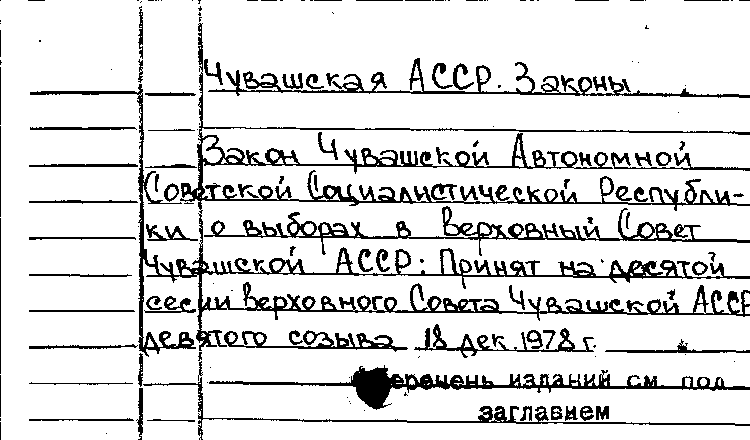 Чувашская АССР. Законы.
Закон Чувашской Автономной
Советской Социалистической Республи-
ки о выборах в Верховный Совет
Чувашской АССР: Принят на десятой
сессии Верховного Совета Чувашской АССР
девятого созыва 18 дек. 1978 г.
еречень изданий см. под
заглавием